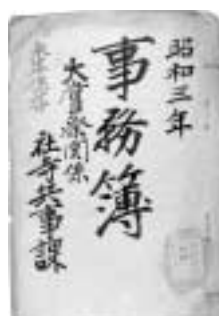 昭和三年
事務簿
大嘗祭関係
社寺兵事課